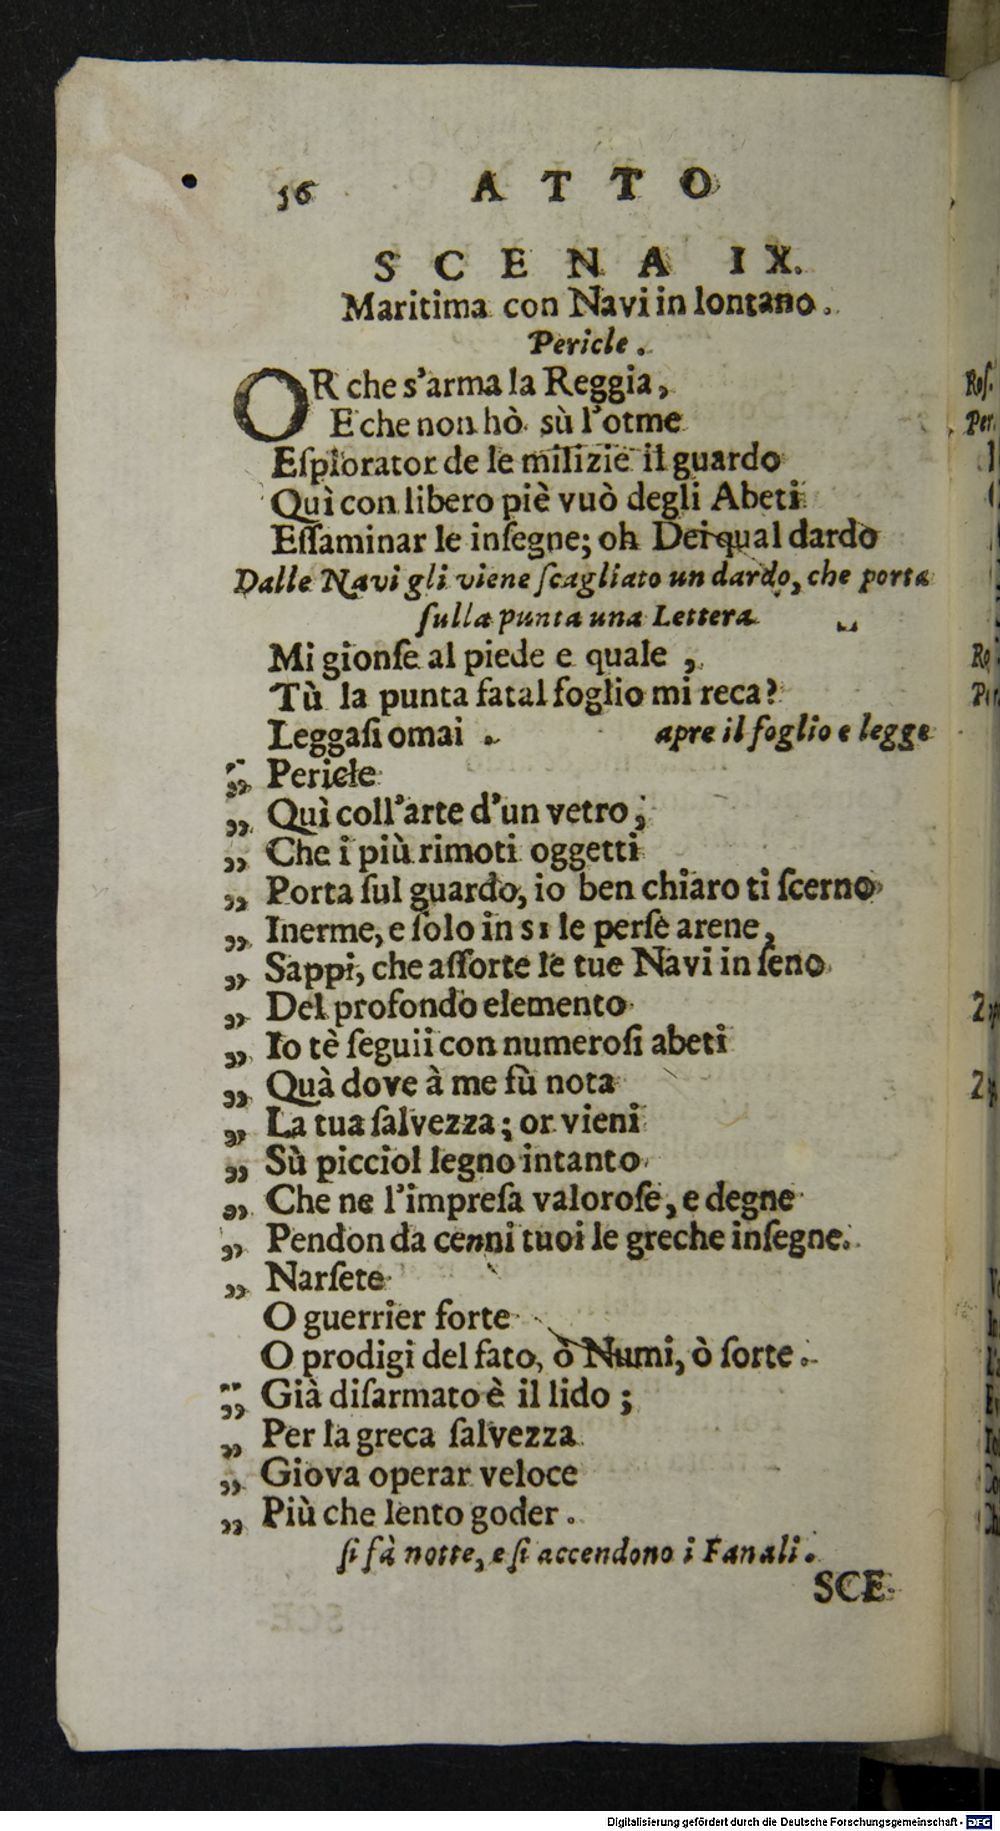 56 ATTO
SCENA IX.
Maritima con Navi in lontano.
Pericle.
OR che s'arma la Reggia,
E che non hò sù l'otme
Eſplorator de le milizie il guardo
Quì con libero piè vuò degli Abeti
Eſſaminar le inſegne; oh Dei qual dardo
Dalle Navi gli viene ſcagliato un dardo, che porta
ſulla punta una Lettera
Mi gionſe al piede e quale,
Tù la punta fatal foglio mi reca?
Leggaſi omai. apre il foglio e legge
,, Pericle
,, Quì coll'arte d'un vetro,
,, Che i più rimoti oggetti
,, Porta ſul guardo, io ben chiaro ti ſcerno
,, Inerme, e ſolo in sì le perſe arene,
,, Sappi, che aſſorte le tue Navi in ſeno
,, Del profondo elemento
,, Io tè ſeguii con numeroſi abeti
,, Quà dove à me fù nota
,, La tua ſalvezza; or vieni
,, Sù picciol legno intanto
,, Che ne l'impreſa valoroſe, e degne
,, Pendon da cenni tuoi le greche inſegne.
,, Narſete
O guerrier forte
O prodigi del fato, ò Numi, ò ſorte.
,, Già diſarmato è il lido;
,, Per la greca ſalvezza
,, Giova operar veloce
,, Più che lento goder.
ſi fà notte, e ſi accendono i Fanali.
SCE-
Roſ.
Per.
Ro
Digitalisierung gefördert durch die Deutsche Forschungsgemeinschaft - DFG